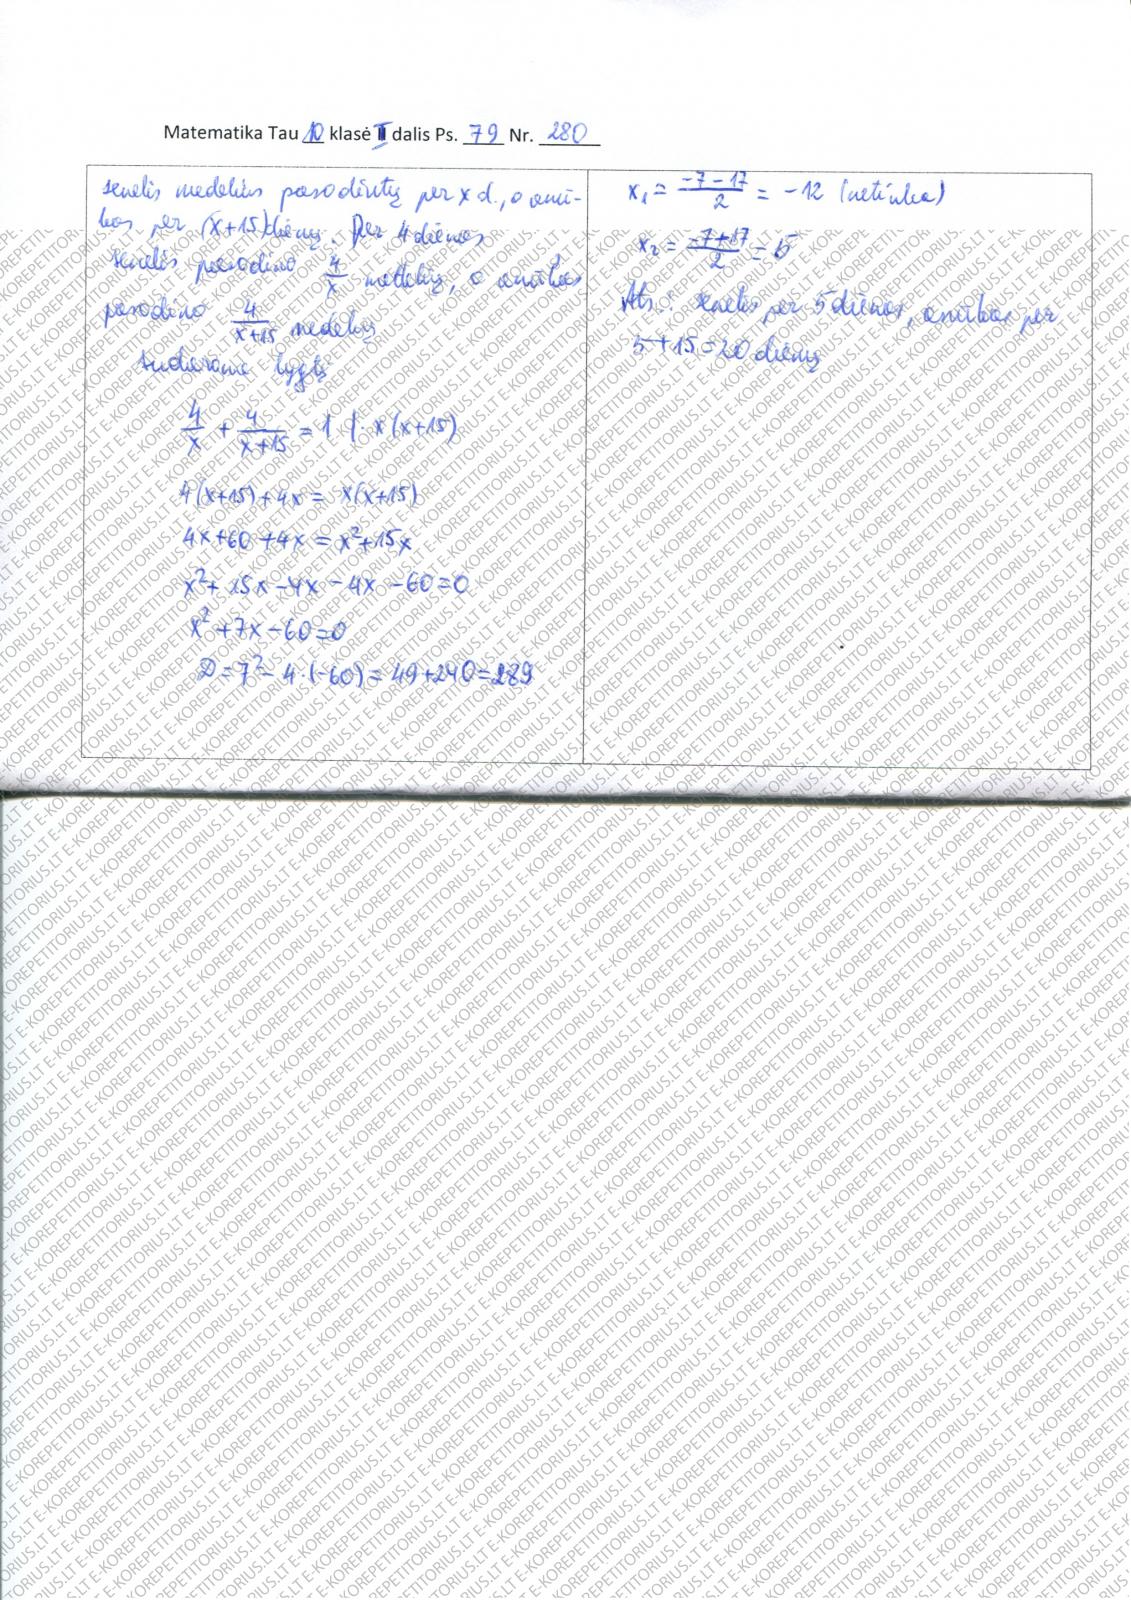 Matematika Tau 10 klasė II dalis Ps. 79 Nr. 280
senelis medelius pasodintų per x d., o anū-
kas per (x+15) dienų. Per 4 dienas
senelis pasodino 4/x medelių, o anūkas
pasodino 4/(x+15) medelių
sudarome lygtį
4/x + 4/(x+15) = 1 | · x(x+15)
4(x+15)+4x = x(x+15)
4x+60+4x = x²+15x
x²+15x-4x-4x-60=0
x²+7x-60=0
D=7²-4·(-60)=49+240=289
x₁ = (-7-17)/2 = -12 (netinka)
x₂ = (-7+17)/2 = 5
Ats.: senelis per 5 dienas, anūkas per
5+15=20 dienų
E-KOREPETITORIUS.LT